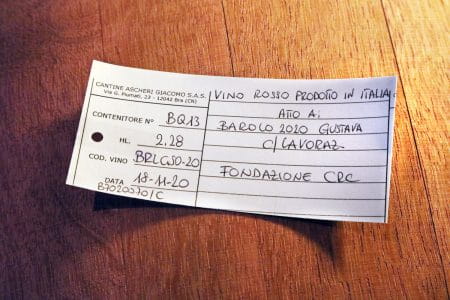 CANTINE ASCHERI GIACOMO S.A.S.
Via G. Piumati, 23 - 12042 Bra (CN)
CONTENITORE N° BQ13
HL. 2,28
COD. VINO BRLGS0-20
DATA 18-11-20
B7020570/C
VINO ROSSO PRODOTTO IN ITALIA
ATTO A:
BAROLO 2020 GUSTAVA
C/LAVORAZ.
FONDAZIONE CRC